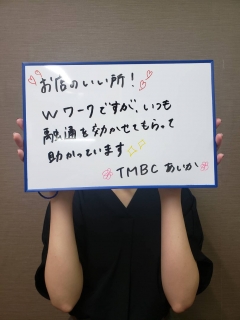 お店のいい所!
Wワークですが、いつも
融通を効かせてもらって
助かっています
TMBC あいか